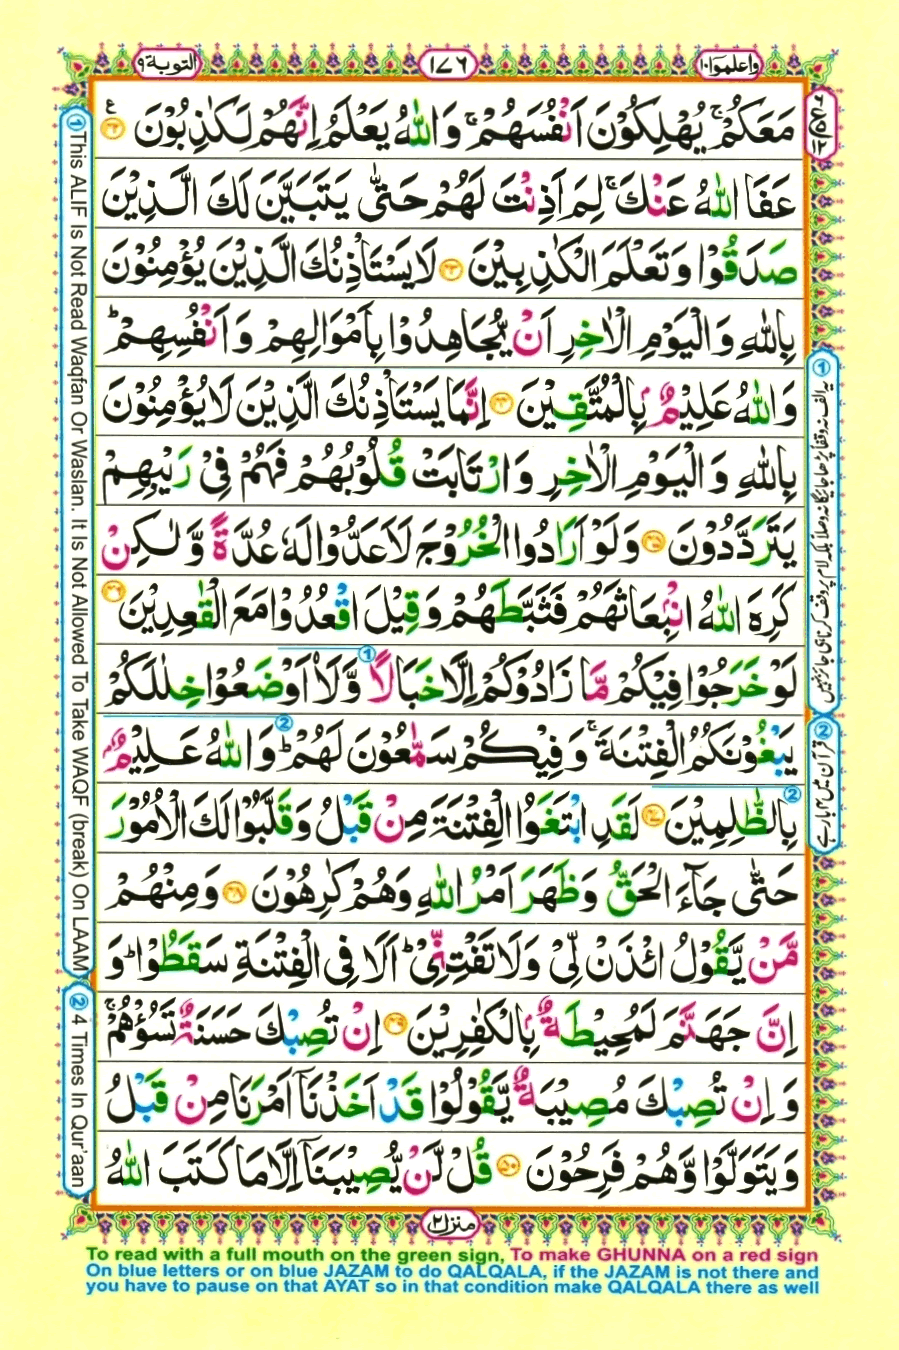 واعلموا ١٠
١٧٦
التوبة ٩
مَعَكُمْ ۚ يُهْلِكُوْنَ اَنْفُسَهُمْ ۚ وَاللّٰهُ يَعْلَمُ اِنَّهُمْ لَكٰذِبُوْنَ ﴿٤٢﴾ ع
عَفَا اللّٰهُ عَنْكَ ۚ لِمَ اَذِنْتَ لَهُمْ حَتّٰى يَتَبَيَّنَ لَكَ الَّذِيْنَ
صَدَقُوْا وَتَعْلَمَ الْكٰذِبِيْنَ ﴿٤٣﴾ لَا يَسْتَاْذِنُكَ الَّذِيْنَ يُؤْمِنُوْنَ
بِاللّٰهِ وَالْيَوْمِ الْاٰخِرِ اَنْ يُّجَاهِدُوْا بِاَمْوَالِهِمْ وَاَنْفُسِهِمْ ؕ
وَاللّٰهُ عَلِيْمٌۢ بِالْمُتَّقِيْنَ ﴿٤٤﴾ اِنَّمَا يَسْتَاْذِنُكَ الَّذِيْنَ لَا يُؤْمِنُوْنَ
بِاللّٰهِ وَالْيَوْمِ الْاٰخِرِ وَارْتَابَتْ قُلُوْبُهُمْ فَهُمْ فِيْ رَيْبِهِمْ
يَتَرَدَّدُوْنَ ﴿٤٥﴾ وَلَوْ اَرَادُوا الْخُرُوْجَ لَاَعَدُّوْا لَهٗ عُدَّةً وَّلٰكِنْ
كَرِهَ اللّٰهُ انْۢبِعَاثَهُمْ فَثَبَّطَهُمْ وَقِيْلَ اقْعُدُوْا مَعَ الْقٰعِدِيْنَ ﴿٤٦﴾
لَوْ خَرَجُوْا فِيْكُمْ مَّا زَادُوْكُمْ اِلَّا خَبَالًا وَّلَا۟اَوْضَعُوْا خِلٰلَكُمْ
يَبْغُوْنَكُمُ الْفِتْنَةَ ۚ وَفِيْكُمْ سَمّٰعُوْنَ لَهُمْ ؕ وَاللّٰهُ عَلِيْمٌۢ
بِالظّٰلِمِيْنَ ﴿٤٧﴾ لَقَدِ ابْتَغَوُا الْفِتْنَةَ مِنْ قَبْلُ وَقَلَّبُوْا لَكَ الْاُمُوْرَ
حَتّٰى جَآءَ الْحَقُّ وَظَهَرَ اَمْرُ اللّٰهِ وَهُمْ كٰرِهُوْنَ ﴿٤٨﴾ وَمِنْهُمْ
مَّنْ يَّقُوْلُ ائْذَنْ لِّيْ وَلَا تَفْتِنِّيْ ؕ اَلَا فِي الْفِتْنَةِ سَقَطُوْا ؕ وَ
اِنَّ جَهَنَّمَ لَمُحِيْطَةٌۢ بِالْكٰفِرِيْنَ ﴿٤٩﴾ اِنْ تُصِبْكَ حَسَنَةٌ تَسُؤْهُمْ ۚ
وَاِنْ تُصِبْكَ مُصِيْبَةٌ يَّقُوْلُوْا قَدْ اَخَذْنَاۤ اَمْرَنَا مِنْ قَبْلُ
وَيَتَوَلَّوْا وَّهُمْ فَرِحُوْنَ ﴿٥٠﴾ قُلْ لَّنْ يُّصِيْبَنَاۤ اِلَّا مَا كَتَبَ اللّٰهُ
منزل ٢
① This ALIF Is Not Read Waqfan Or Waslan. It Is Not Allowed To Take WAQF (break) On LAAM
② 4 Times In Qur'aan
② قرآن میں ۴ بار ہے
To read with a full mouth on the green sign, To make GHUNNA on a red sign
On blue letters or on blue JAZAM to do QALQALA, if the JAZAM is not there and
you have to pause on that AYAT so in that condition make QALQALA there as well